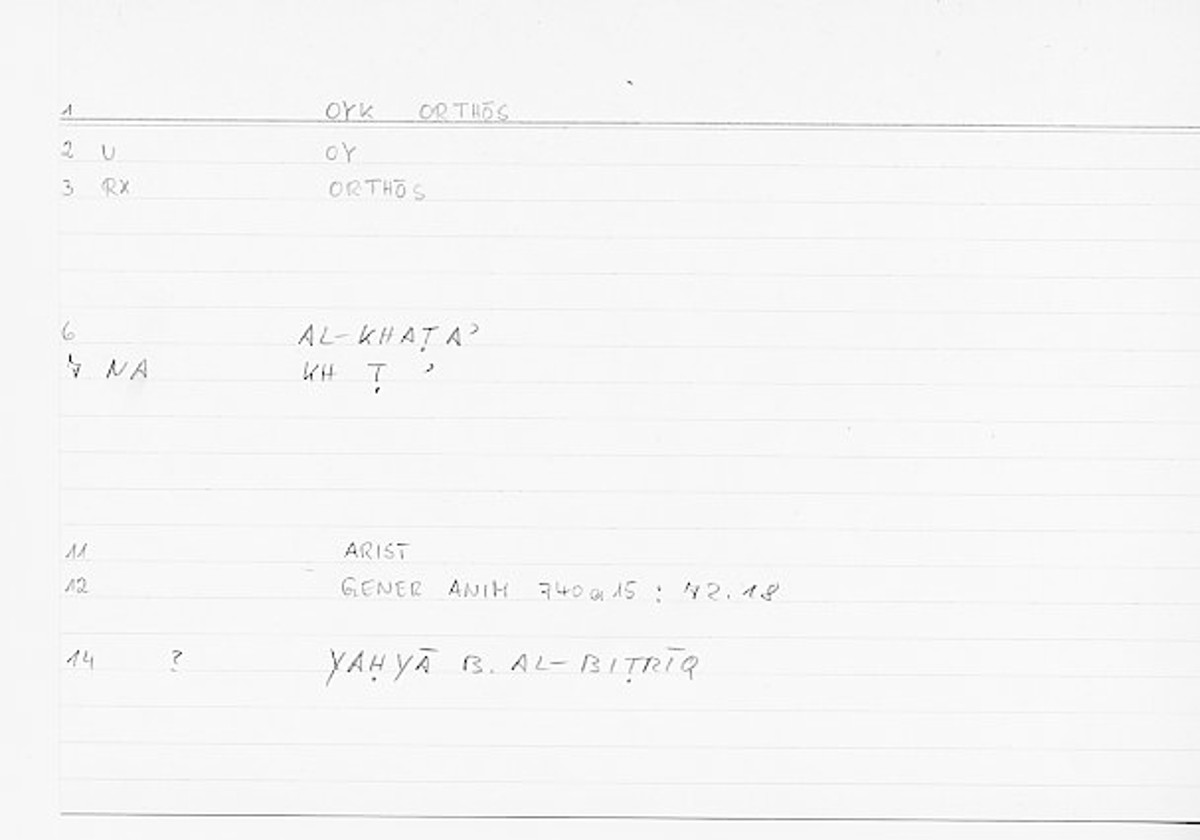 1 OYK ORTHŌS
2 U OY
3 RX ORTHŌS
6 AL-KHAṬAʾ
7 NA KH Ṭ ʾ
11 ARIST
12 GENER ANIM 740a15 : 72.18
14 ? YAḤYĀ B. AL-BIṬRĪQ